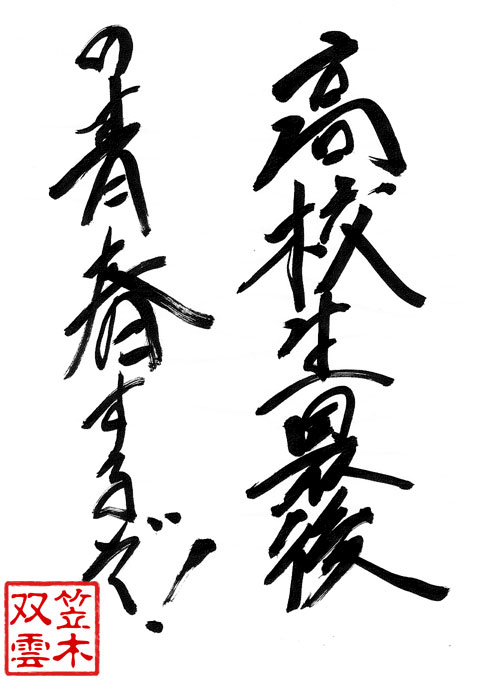 高校生最後
の青春するぞ!
笠木
双雲